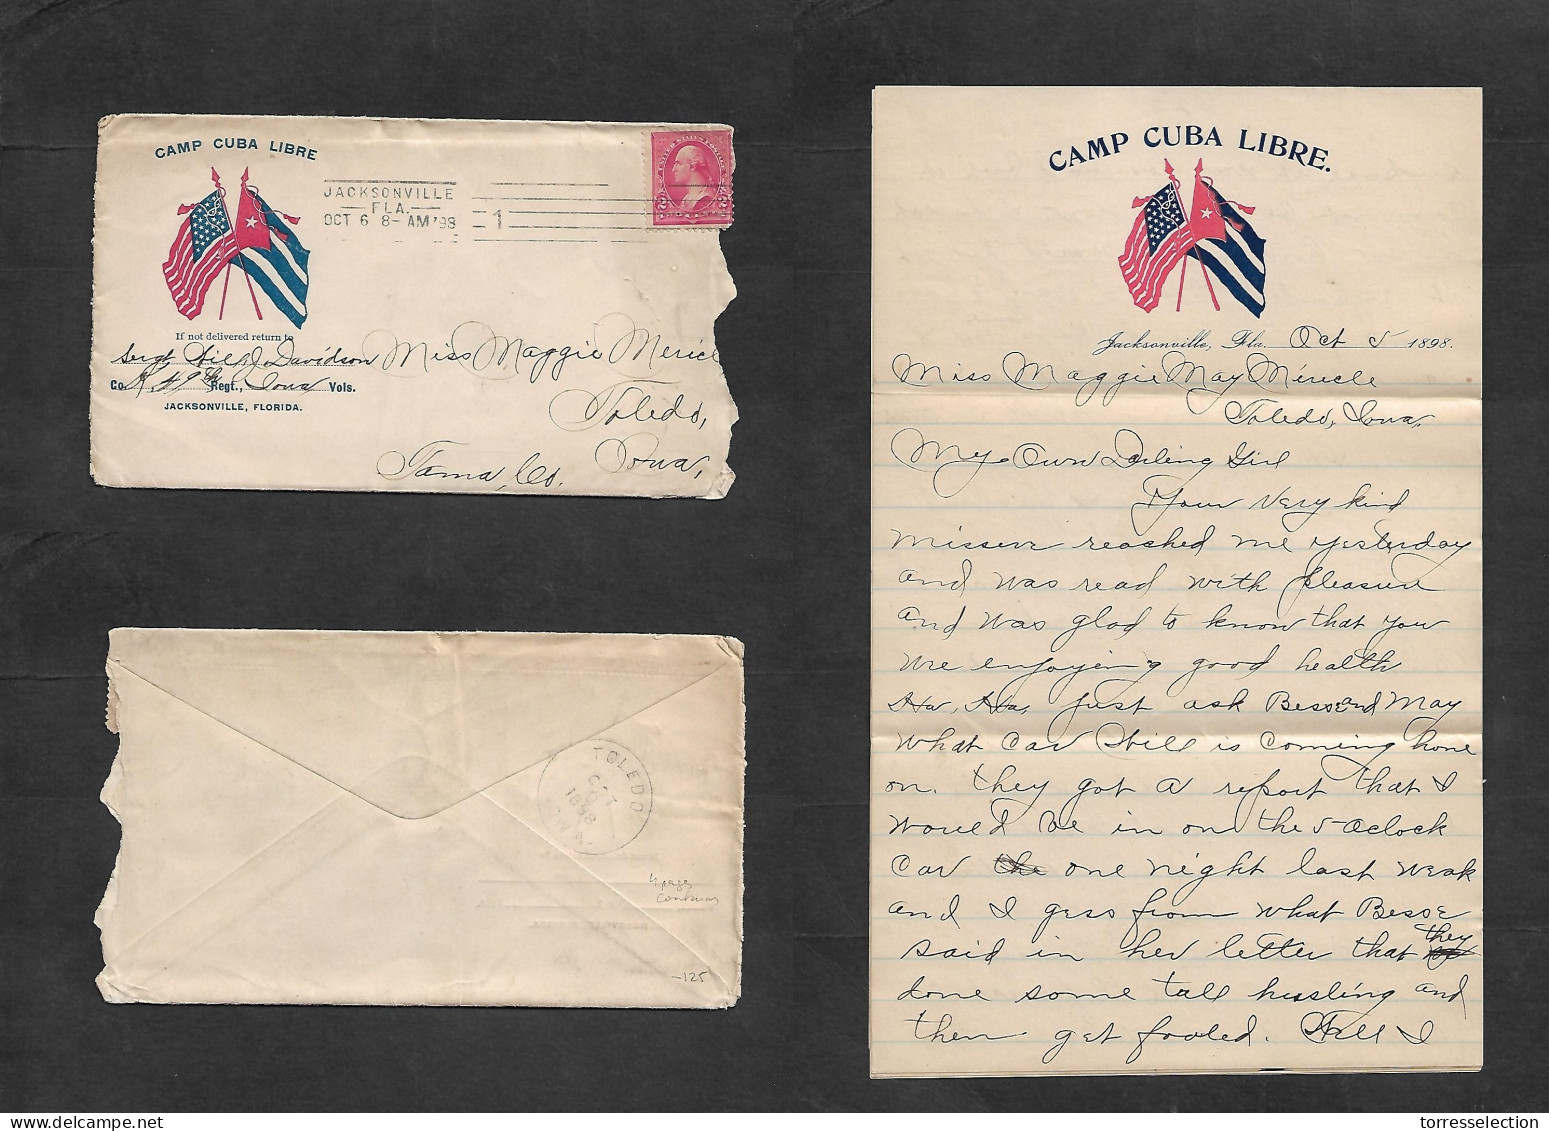 CAMP CUBA LIBRE
JACKSONVILLE
FLA.
OCT 6 8-AM '98
1
If not delivered return to
Sergt Davidson
Co. K, 49th Regt., Iowa Vols.
JACKSONVILLE, FLORIDA.
Miss Maggie Mericl
Toledo,
Tama, Co. Iowa,
TOLEDO
OCT
9
1898
IWA.
4 pages
-125
CAMP CUBA LIBRE.
Jacksonville, Fla. Oct 5 1898.
Miss Maggie May Miricle
Toledo, Iowa,
My Own Darling Girl
Your very kind
missive reached me yesterday
and was read with pleasure
and was glad to know that you
are enjoying good health
Ha, Ha, just ask Bess and May
what car Still is coming home
on. they got a report that I
would be in on the 5-Oclock
car the one night last weak
and I gess from what Besse
said in her letter that they
done some tall hussling and
then get fooled. Still I
torresselection